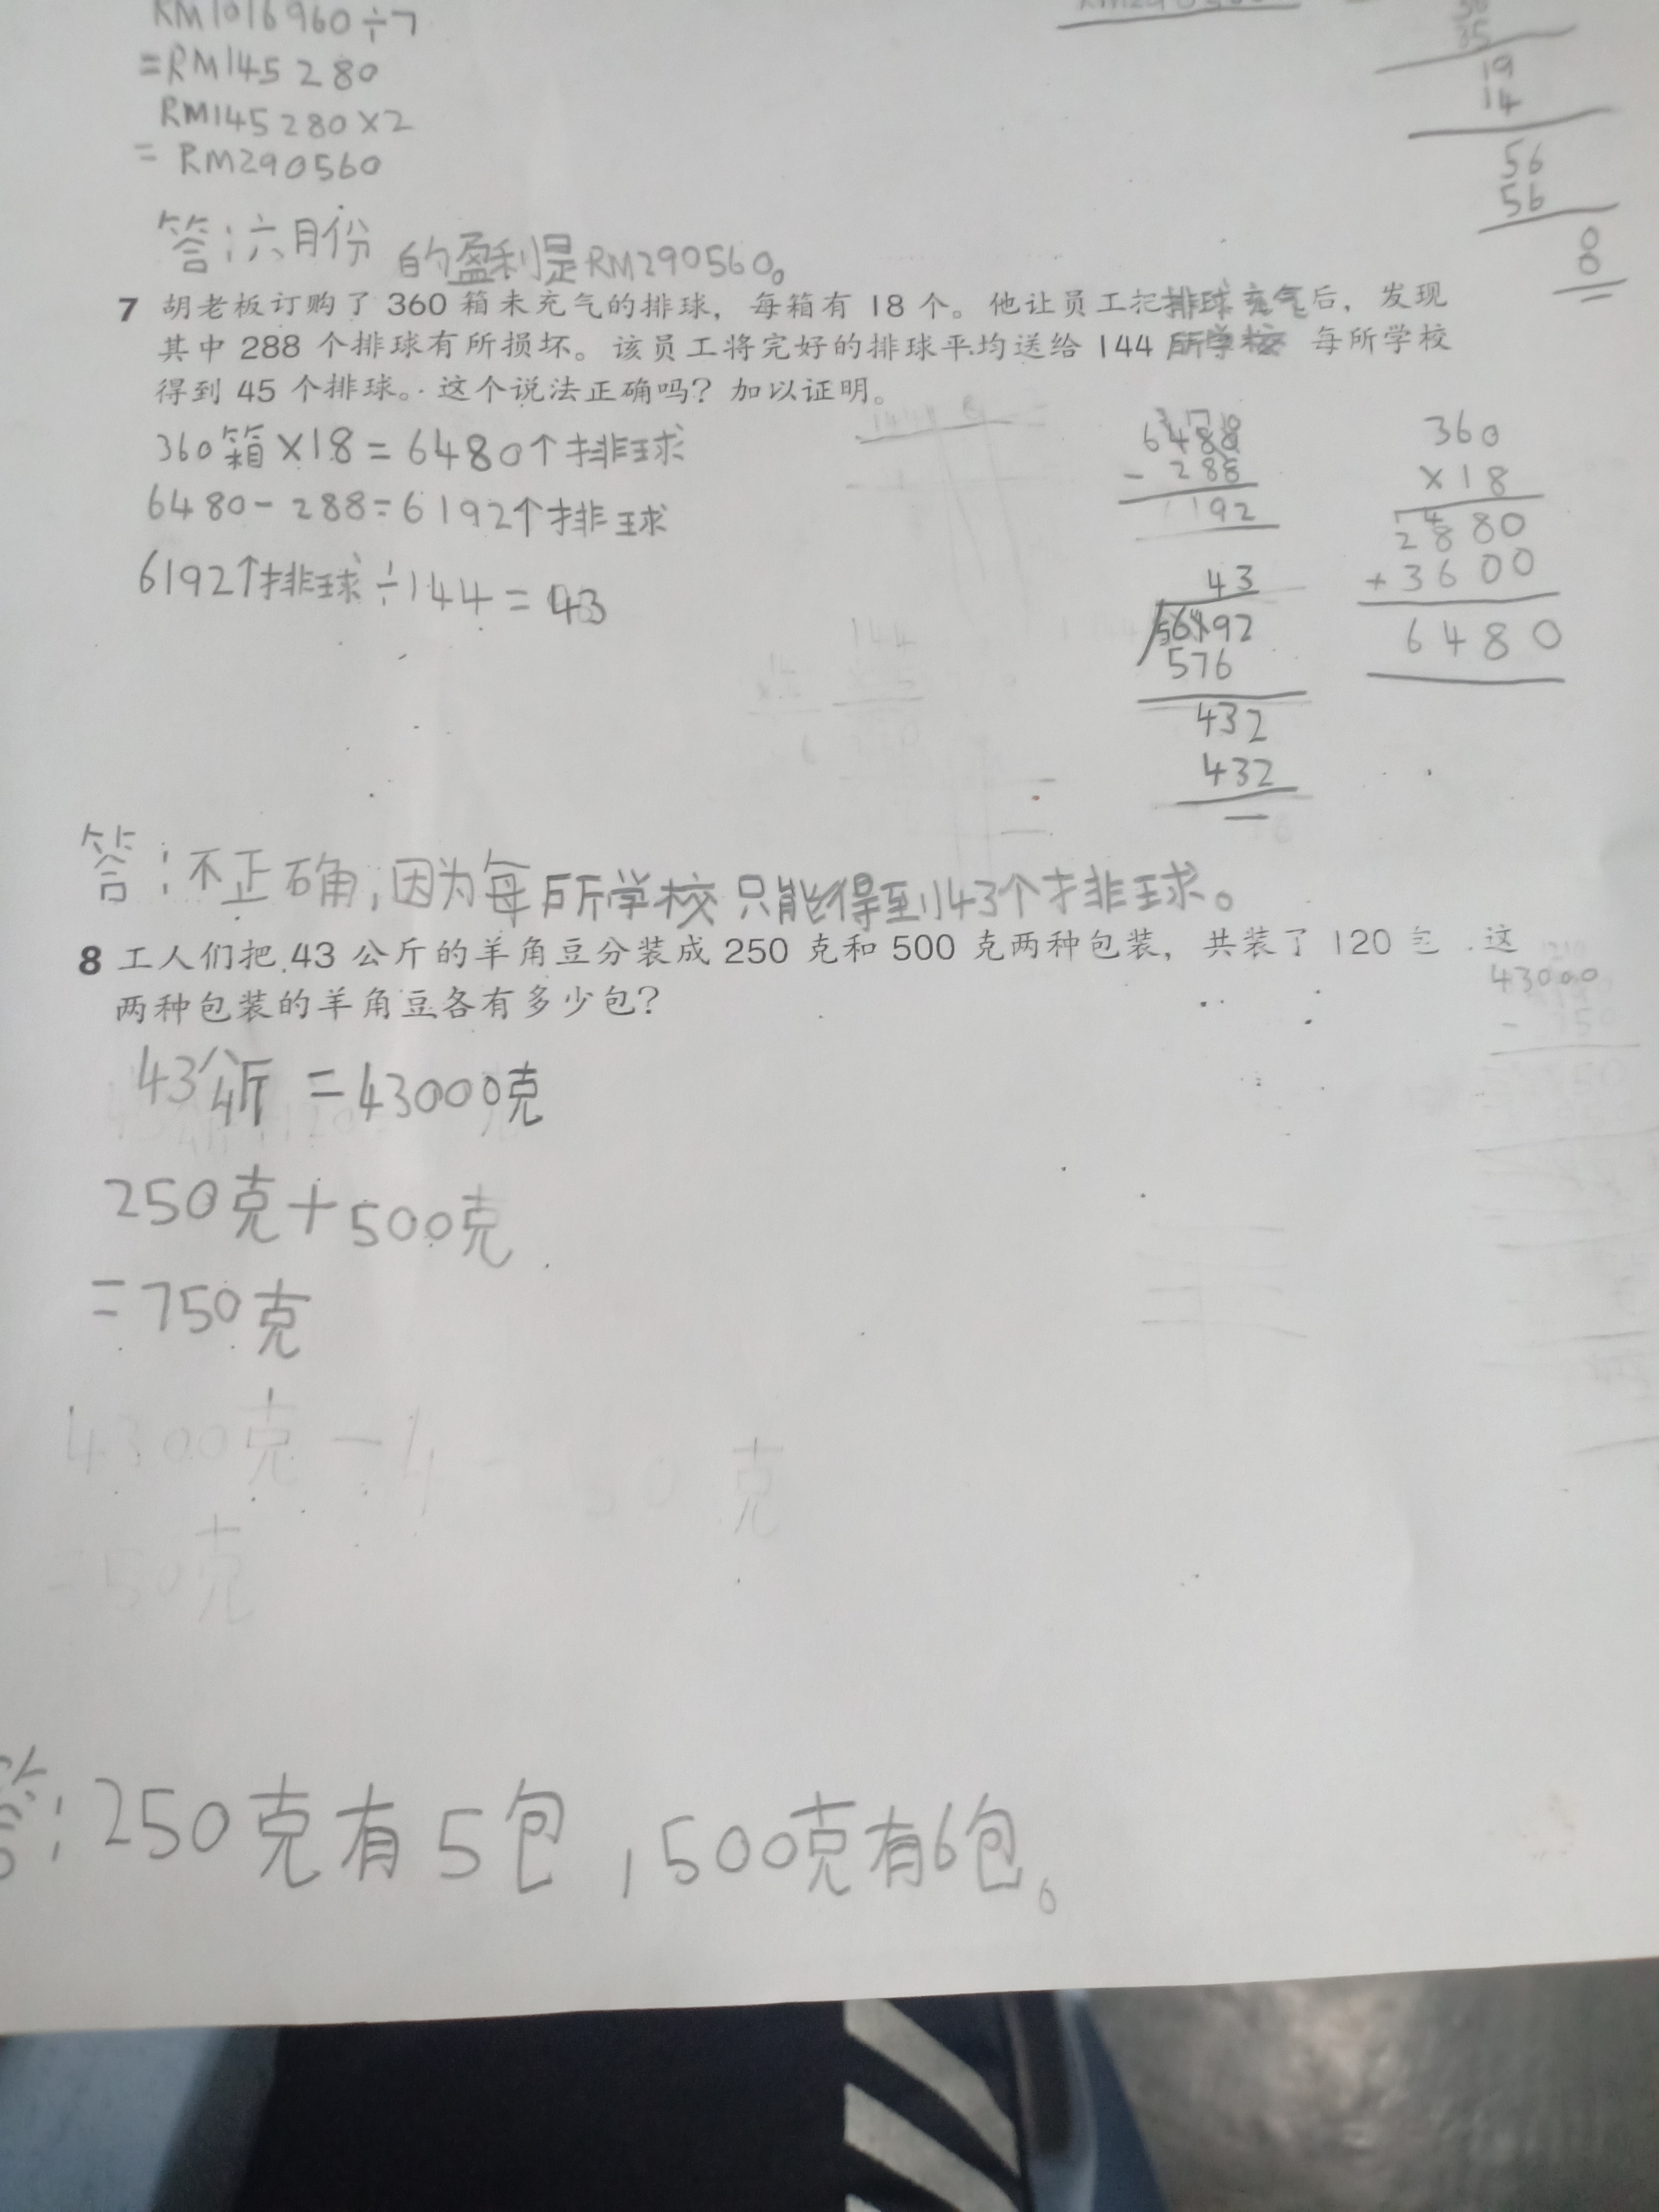 RM1016960÷7
=RM145280
RM145280×2
= RM290560
答:六月份的盈利是RM290560。
19
14
56
56
0
0
7 胡老板订购了 360 箱未充气的排球，每箱有 18 个。他让员工把排球充气后，发现
其中 288 个排球有所损坏。该员工将完好的排球平均送给 144 所学校 每所学校
得到 45 个排球。这个说法正确吗？加以证明。
360箱×18=6480个排球
6480-288=6192个排球
6192个排球÷144=43
- 288
192
43
576
432
432
360
×18
2880
+3600
6480
答:不正确,因为每所学校只能得到43个排球。
8 工人们把 43 公斤的羊角豆分装成 250 克和 500 克两种包装，共装了 120 包 这
两种包装的羊角豆各有多少包？
43000
43公斤=43000克
250克+500克
=750克
答:250克有5包,500克有6包。